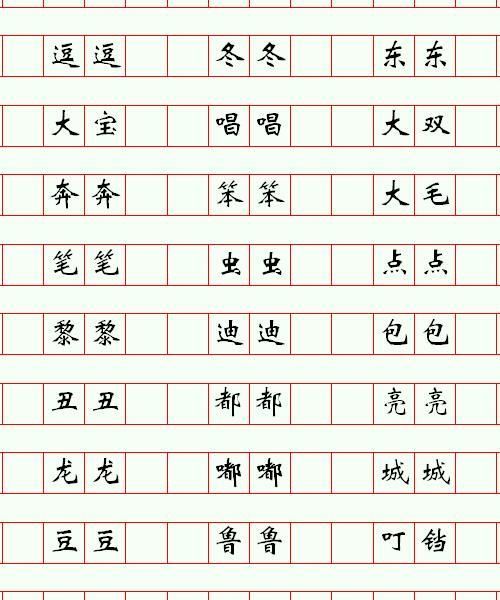 逗逗 冬冬 东东
大宝 唱唱 大双
奔奔 笨笨 大毛
笔笔 虫虫 点点
黎黎 迪迪 包包
丑丑 都都 亮亮
龙龙 嘟嘟 城城
豆豆 鲁鲁 叮铛